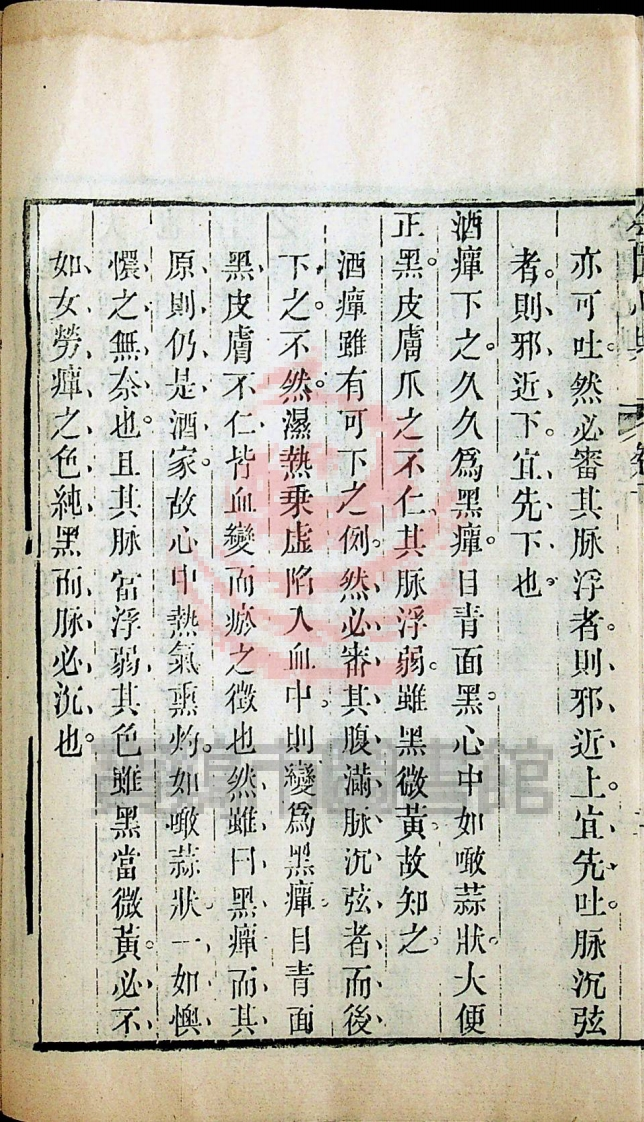 亦可吐。然必審其脉浮者。則邪近上。宜先吐。脉沉弦
者。則邪近下。宜先下也。
酒癉下之。久久爲黑癉。目青面黑。心中如噉蒜狀。大便
正黑。皮膚爪之不仁。其脉浮弱。雖黑微黃。故知之。
酒癉雖有可下之例。然必審其腹滿脉沉弦者。而後
下之。不然。濕熱乗虛陷入血中。則變爲黑癉。目青面
黑。皮膚不仁。皆血變而瘀之徵也。然雖曰黑癉。而其
原則仍是酒家。故心中熱氣熏灼。如噉蒜狀。一如懊
憹之無奈也。且其脉當浮弱。其色雖黑當微黃。必不
如女勞癉之色純黑而脉必沉也。
圖書館